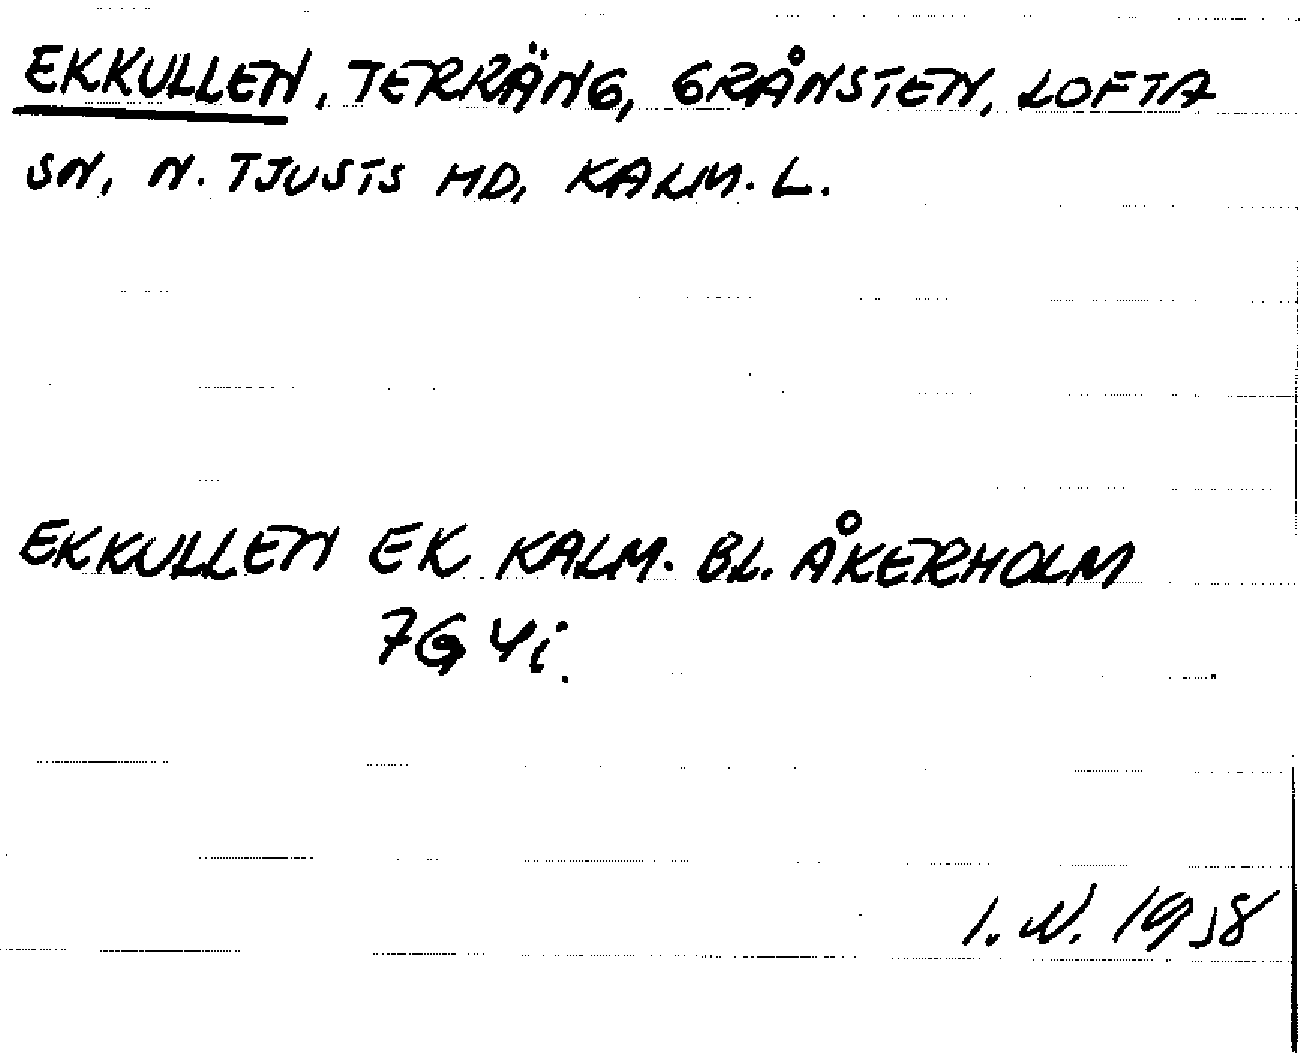 EKKULLEN, TERRÄNG, GRÅNSTEN, LOFTA
SN, N. TJUSTS HD, KALM. L.
EKKULLEN EK KALM. BL. ÅKERHOLM
7G 4i.
I. N. 1938